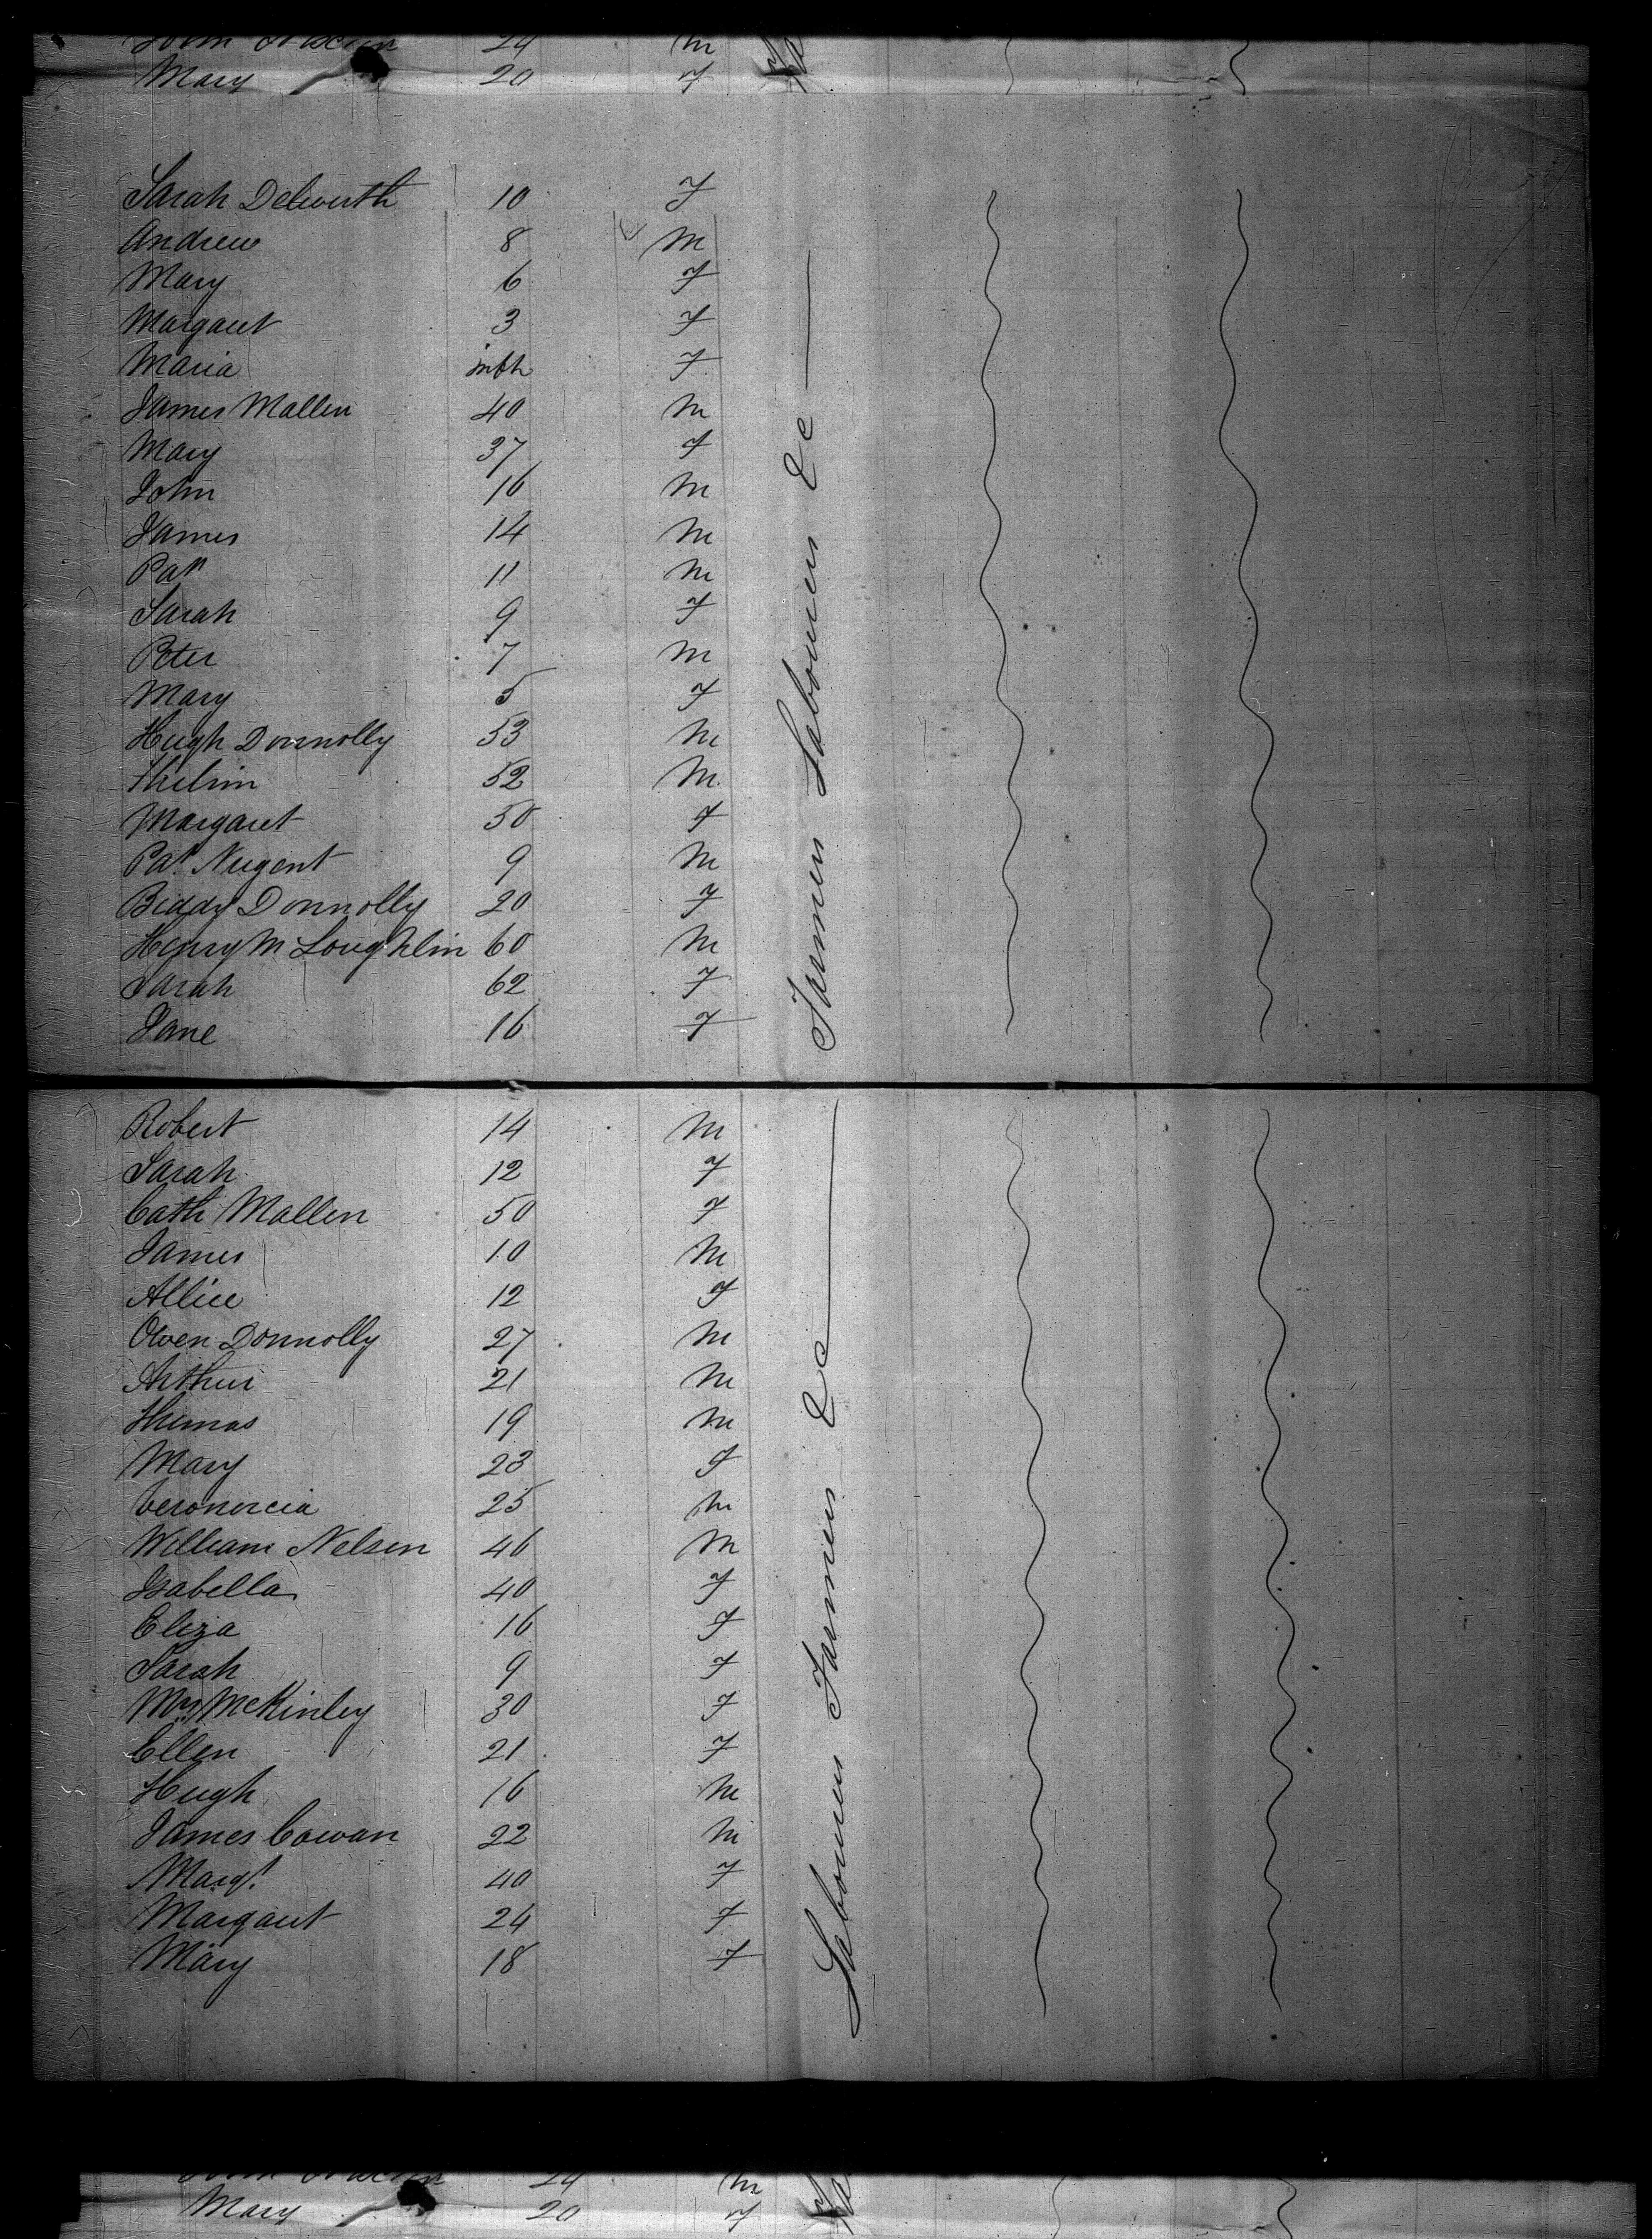 John 24 m
Mary 20 f
Sarah Delworth 10 f
Andrew 8 m
Mary 6 f
Margaret 3 f
Maria f
James Mallen 40 m
Mary 37 f
John 16 m
James 14 m
Patk 11 m
Sarah 9 f
Peter 7 m
Mary 5 f
Hugh Donnolly 53 m
Phelim 52 m
Margaret 50 f
Patk Nugent 9 m
Biddy Donnolly 20 f
Henry McLoughlin 60 m
Sarah 62 f
Jane 16 f
Farmers Labourers &c
Robert 14 m
Sarah 12 f
Cath Mallen 50 f
James 10 m
Allice 12 f
Owen Donnolly 27 m
Arthur 21 m
Thomas 19 m
Mary 23 f
Veronercia 25 m
William Nelson 46 m
Isabella 40 f
Eliza 16 f
Sarah 9 f
Mrs McKinley 30 f
Ellen 21 f
Hugh 16 m
James Cowan 22 m
Margt 40 f
Margaret 24 f
Mary 18 f
Labourers Farmers &c
24 m
Mary 20 f